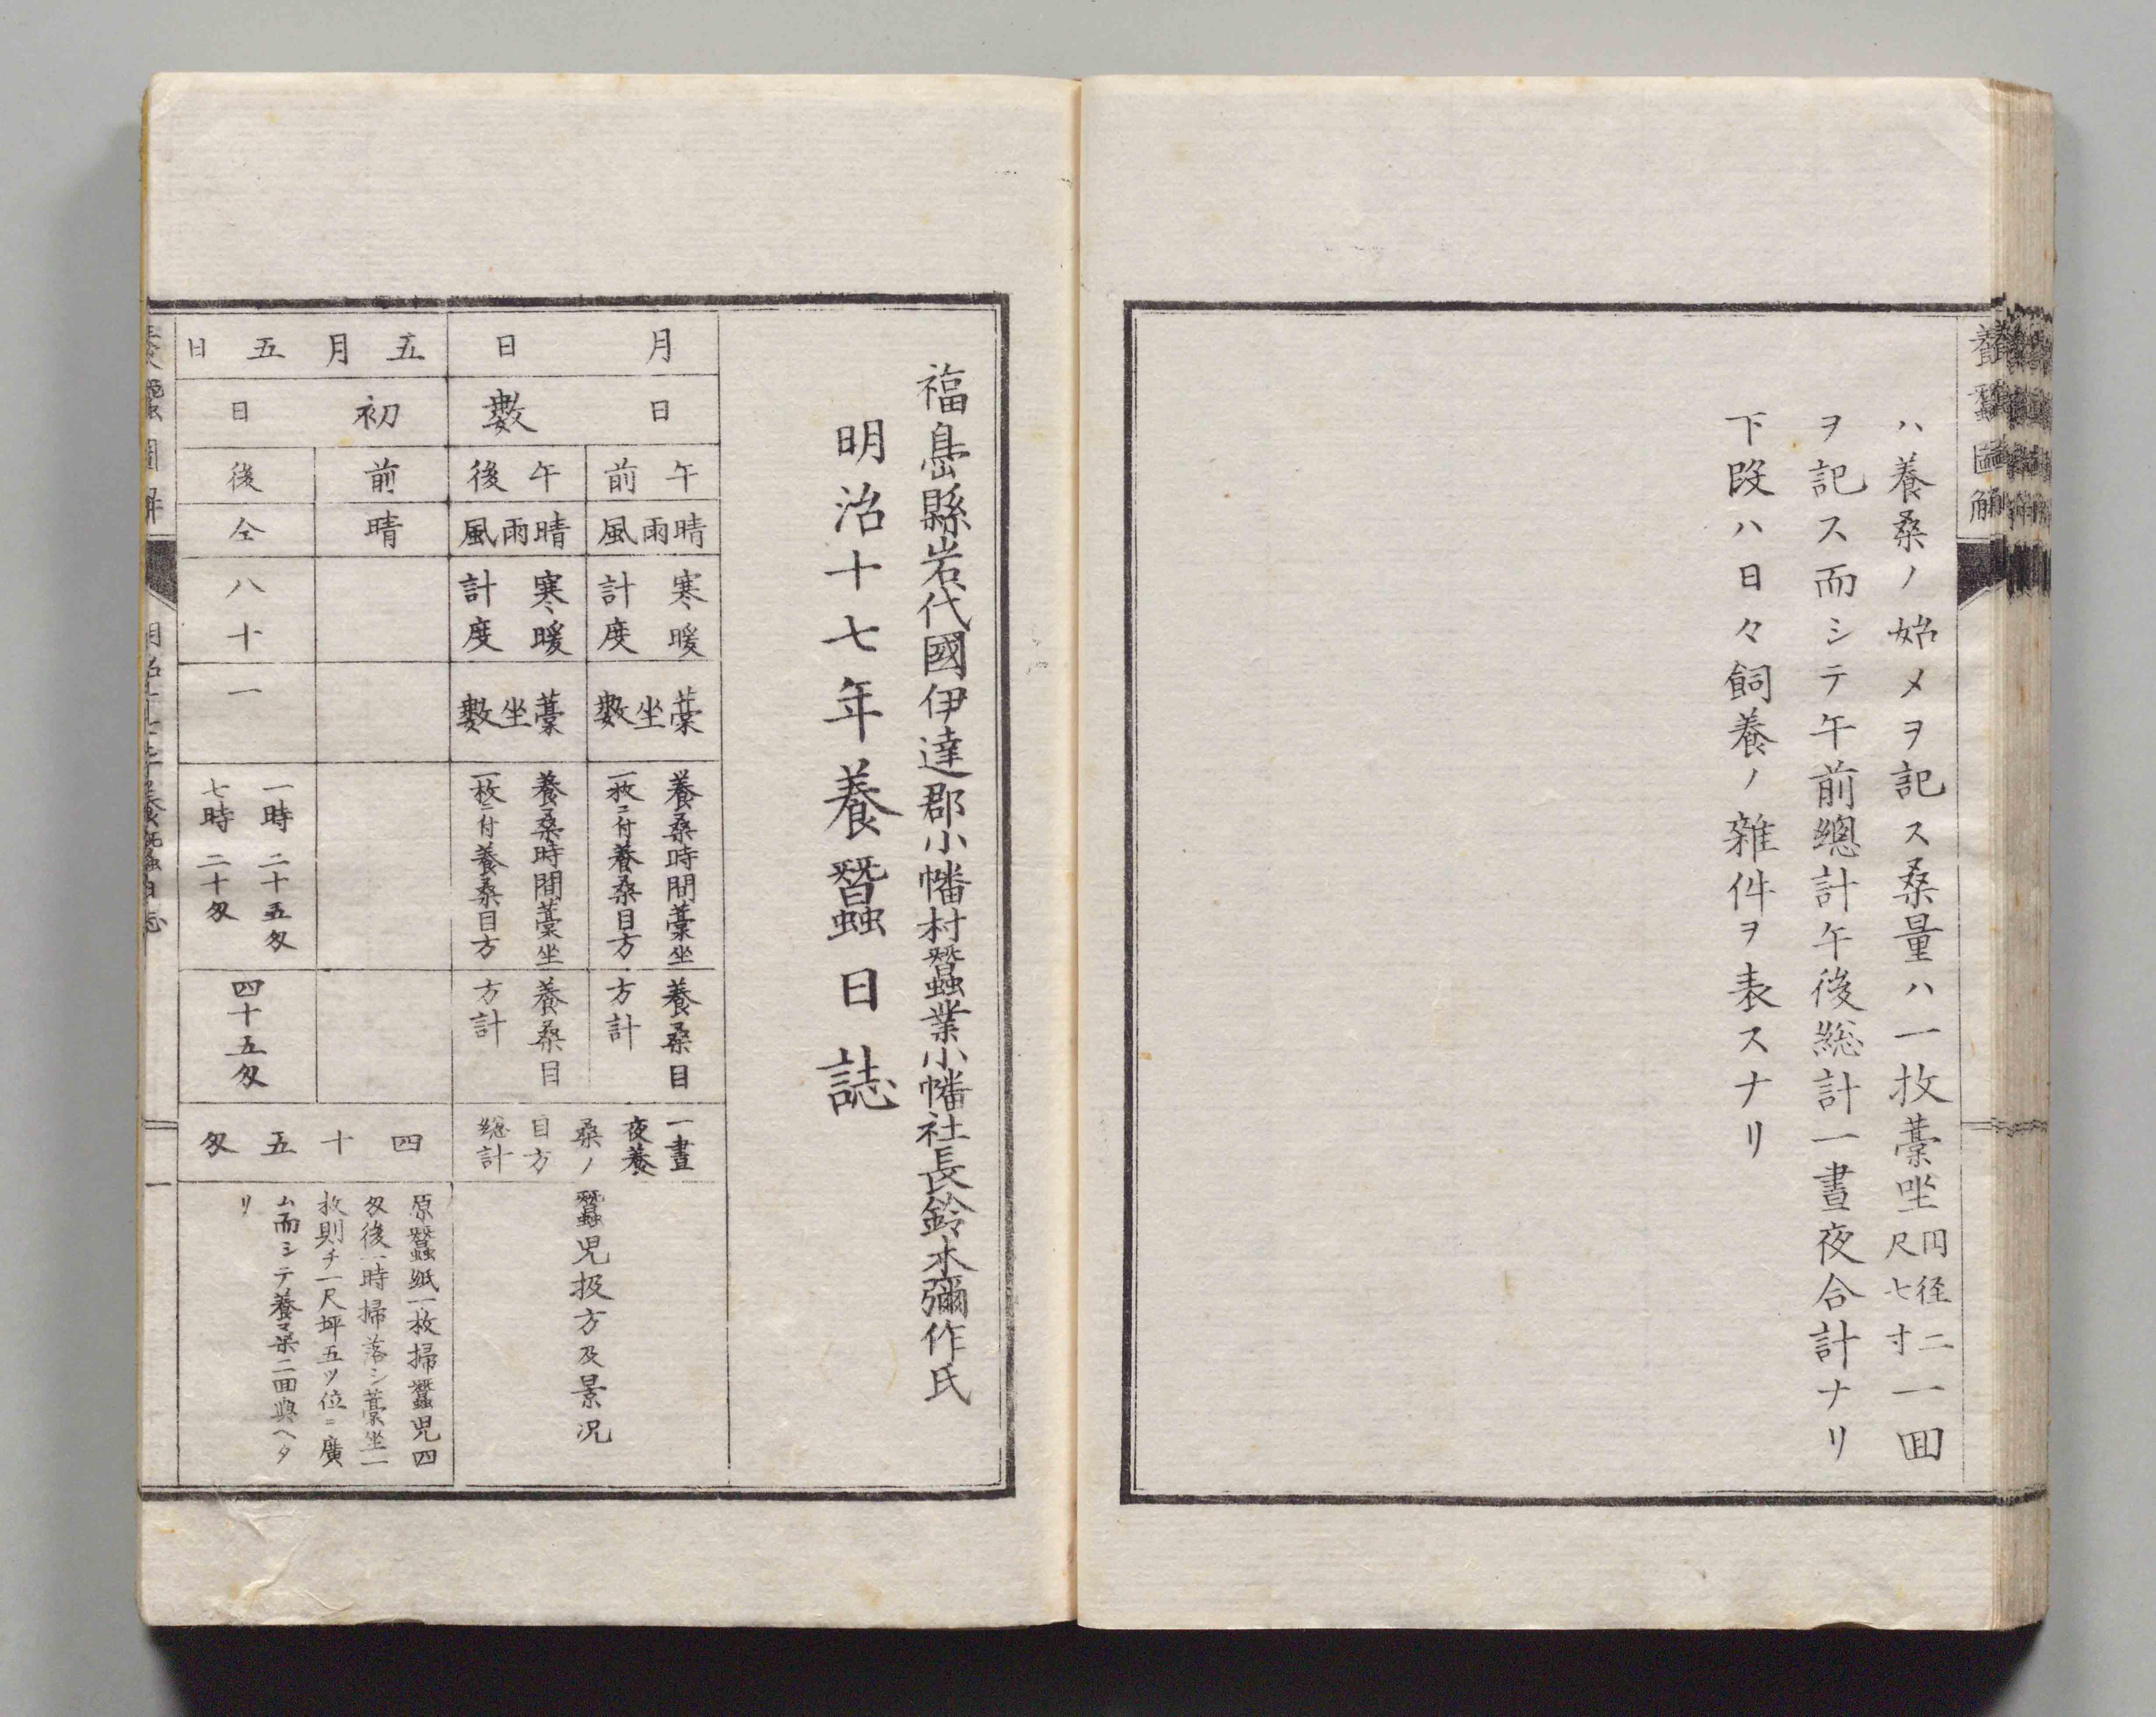 養蠶圖解
ハ養桑ノ始メヲ記ス桑量ハ一枚藁坐円径二尺七寸一囬
ヲ記ス而シテ午前總計午後総計一晝夜合計ナリ
下段ハ日々飼養ノ雑件ヲ表スナリ
福島縣岩代國伊達郡小幡村蠶業小幡社長鈴木彌作氏
明治十七年養蠶日誌
月日
日數
午前
午後
晴雨風
晴雨風
寒暖計度
寒暖計度
藁坐數
藁坐數
養桑時間藁坐一枚ニ付養桑目方
養桑時間藁坐一枚ニ付養桑目方
養桑目方計
養桑目方計
一晝夜養桑ノ目方総計
蠶児扱方及景况
五月五日
初日
前
後
晴
仝
八十
一
一時 二十五匁
七時 二十匁
四十五匁
四十五匁
原蠶紙一枚掃蠶児四
匁後一時掃落シ藁坐一
枚則チ一尺坪五ツ位ニ廣
ム而シテ養桑二囬與ヘタ
リ
養蠶圖解
明治十七年養蠶日誌
一